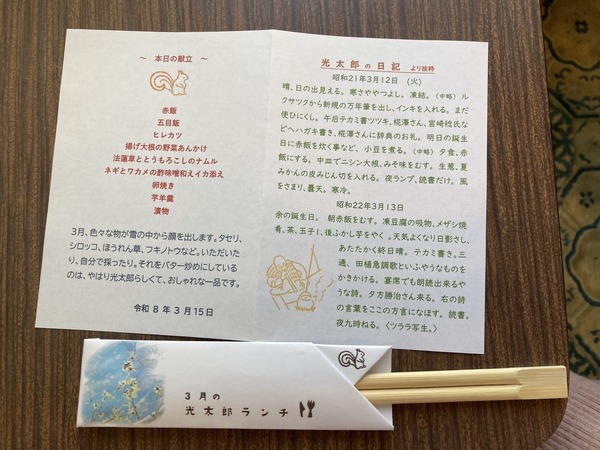 ～ 本日の献立 ～
赤飯
五目飯
ヒレカツ
揚げ大根の野菜あんかけ
法蓮草ととうもろこしのナムル
ネギとワカメの酢味噌和えイカ添え
卵焼き
芋羊羹
漬物
3月、色々な物が雪の中から顔を出します。タセリ、
シロッコ、ほうれん草、フキノトウなど。いただいた
り、自分で採ったり。それをバター炒めにしている
のは、やはり光太郎らしくて、おしゃれな一品です。
令和8年3月15日
光太郎の日記 より抜粋
昭和21年3月12日 （火）
晴、日の出見える。寒さややつよし。凍結。（中略）ル
クサツクから新規の万年筆を出し、インキを入れる。まだ
使ひにくし。午后テカミ書ツツキ、椛澤さん、宮崎稔氏な
どへハガキ書き、椛澤さんに辞典のお礼。明日の誕生
日に赤飯を炊く事など、小豆を煮る。（中略）夕食、赤
飯にする。中皿でニシン大根、みそ味をむす。生葱、夏
みかんの皮みじん切を入れる。夜ランプ、読書だけ。風
をさまり、曇天。寒冷。
昭和22年3月13日
余の誕生日。 朝赤飯をむす。凍豆腐の吸物、メザシ焼
肴、茶、玉子1、後ふかし芋をやく 。天気よくなり日影さし、
あたたかく終日晴。テカミ書き、三
通、 田植急調歌といふやうなものを
かきかける。宴席でも朗読出来るや
うな詩。夕方勝治さん来る。右の詩
の言葉をここの方言になほす。読書。
夜九時ねる。〈ツララ写生。〉
3月の
光太郎ランチ